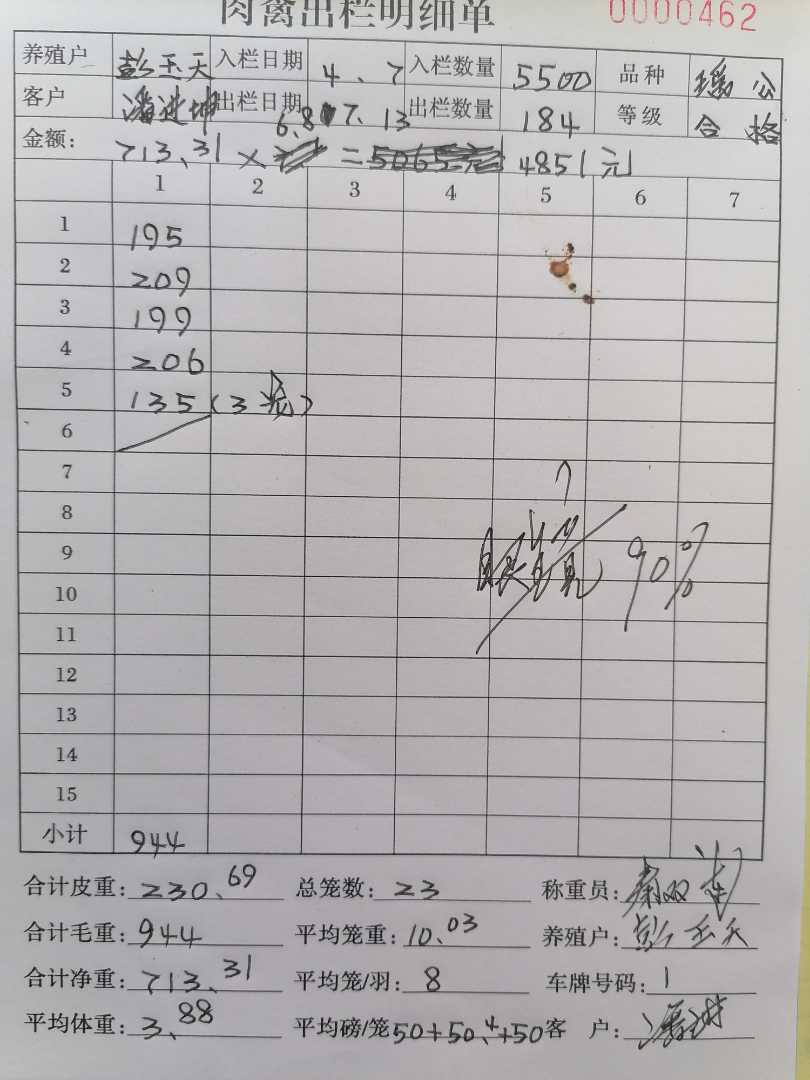 肉禽出栏明细单 0000462
养殖户 彭玉天 入栏日期 4、7 入栏数量 5500 品种 瑶公
客户 潘进坤 出栏日期 7、13 出栏数量 184 等级 合格
金额: 713、31 × 6、8 = 4851元
1 2 3 4 5 6 7
1 195
2 209
3 199
4 206
5 135(3笼)
6
7
8
9 90%
10
11
12
13
14
15
小计 944
合计皮重: 230、69 总笼数: 23 称重员:
合计毛重: 944 平均笼重: 10、03 养殖户: 彭玉天
合计净重: 713、31 平均笼/羽: 8 车牌号码: 1
平均体重: 3、88 平均磅/笼 50+50、4+50 客 户: